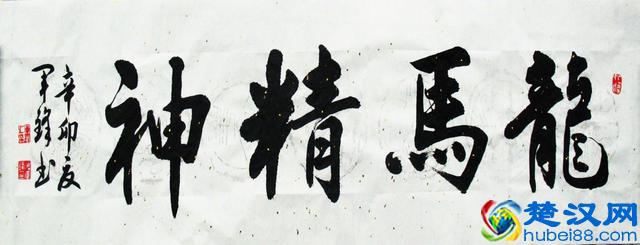 龍馬精神
辛卯夏
军鋒书
楚汉网
hubei88.com